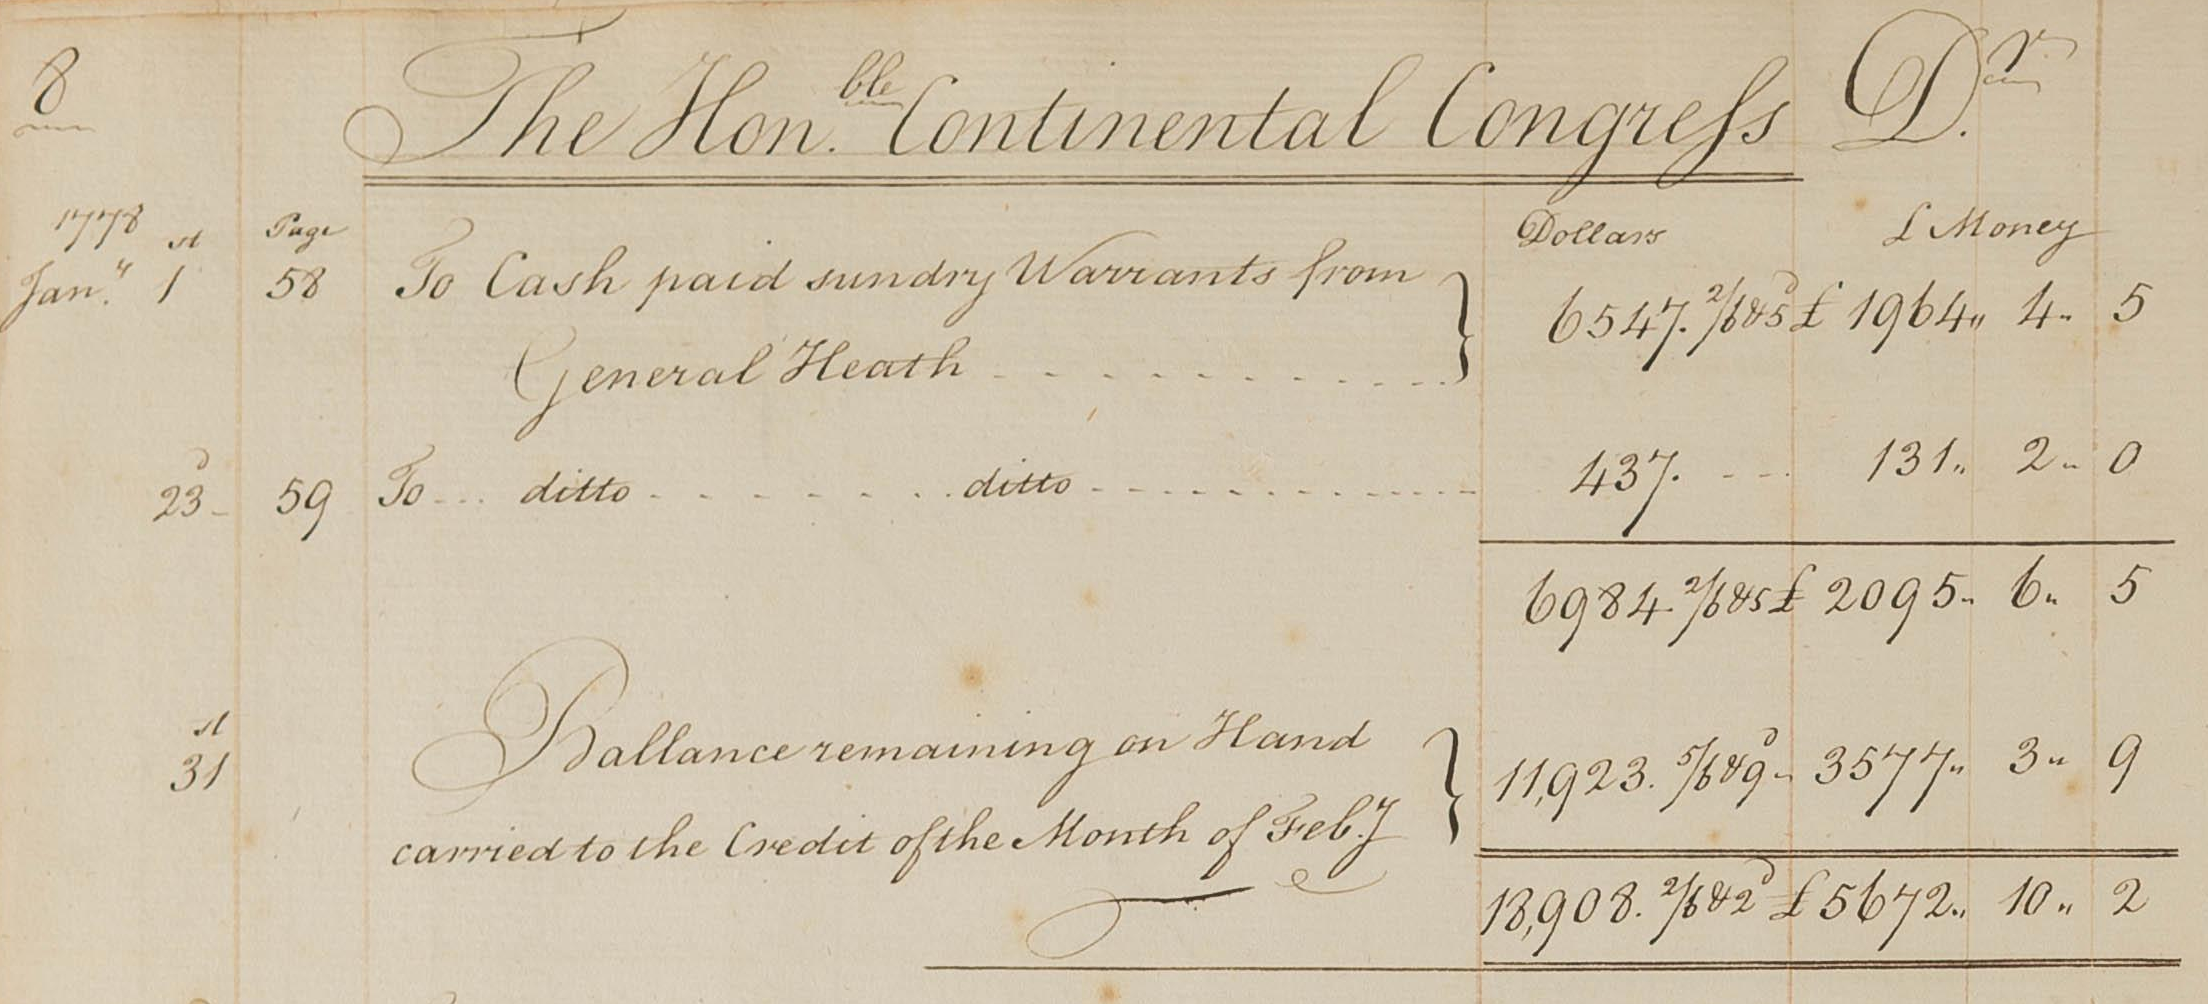 8 The Hon.ble Continental Congress D.r
1778 Page Dollars £ Money
Jan.y 1st 58 To Cash paid sundry Warrants from
General Heath - - - - - - - - - - - } 6547. 2/6 & 5d £ 1964 " 4 " 5
23d - 59 To - - - ditto - - - - - - - ditto - - - - - - - - - - - 437. - - - 131 " 2 " 0
6984. 2/6 & 5 £ 2095 " 6 " 5
31st Ballance remaining on Hand
carried to the Credit of the Month of Feb.y } 11,923. 5/6 & 9d - 3577 " 3 " 9
18,908. 2/6 & 2d £ 5672 " 10 " 2